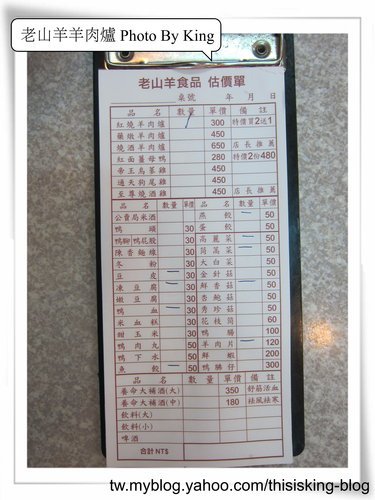 老山羊羊肉爐 Photo By King
老山羊食品 估價單
桌號 年 月 日
品 名 數量 單價 備 註
紅燒羊肉爐 / 300 特價買2送1
藥燉羊肉爐 450
燒酒羊肉爐 650 店長推薦
紅面薑母鴨 280 特價2份480
帝王烏蔘雞 450
通天狗尾雞 450
至尊燒酒雞 450 店長推薦
品 名 數量 單價 品 名 數量 單價
公賣局米酒 燕 餃 50
鴨 頭 30 蛋 餃 50
鴨腳|鴨屁股 30 高麗菜 一 50
陳香麵線 30 茼蒿菜 一 50
冬 粉 30 大白菜 50
豆 皮 一 30 金針菇 50
凍豆腐 一 30 鮮香菇 一 50
嫩豆腐 30 杏鮑菇 50
鴨 血 一 30 秀珍菇 50
米血糕 30 花枝筒 60
甜玉米 30 鴨 腸 100
鴨肉丸 50 羊肉片 一 120
鴨下水 50 鮮 蝦 200
魚 餃 一 50 鴨腱仔 300
品 名 數 量 單價 備 註
養命大補酒(大) 350 舒筋活血
養命大補酒(中) 180 祛風祛寒
飲料(大)
飲料(小)
啤酒
合計 NT$
tw.myblog.yahoo.com/thisisking-blog